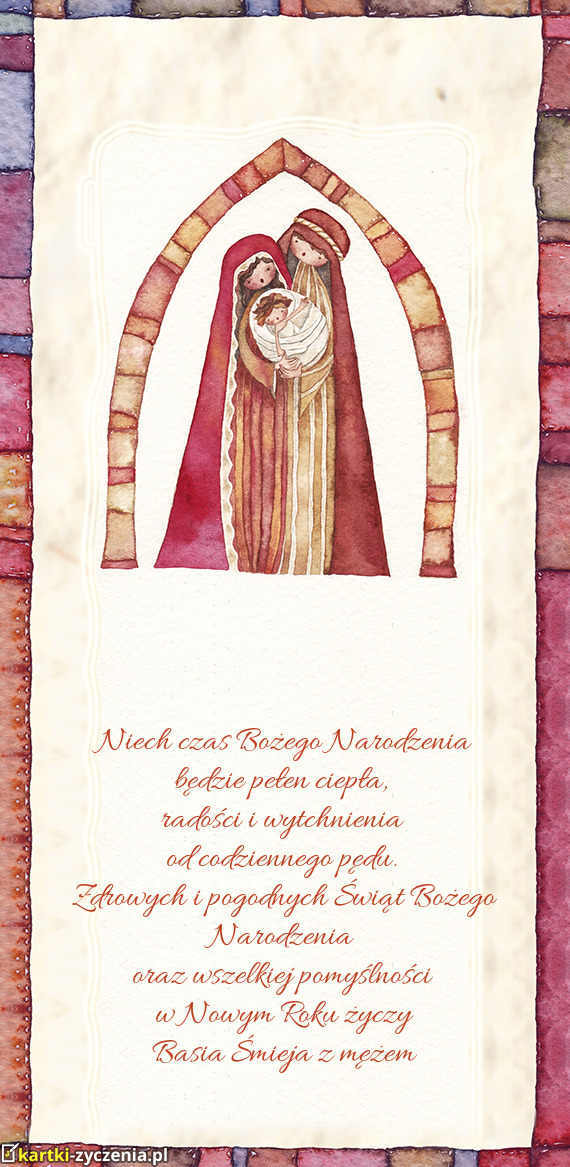 Niech czas Bożego Narodzenia
będzie pełen ciepła,
radości i wytchnienia
od codziennego pędu.
Zdrowych i pogodnych Świąt Bożego
Narodzenia
oraz wszelkiej pomyślności
w Nowym Roku życzy
Basia Śmieja z mężem
kartki-zyczenia.pl